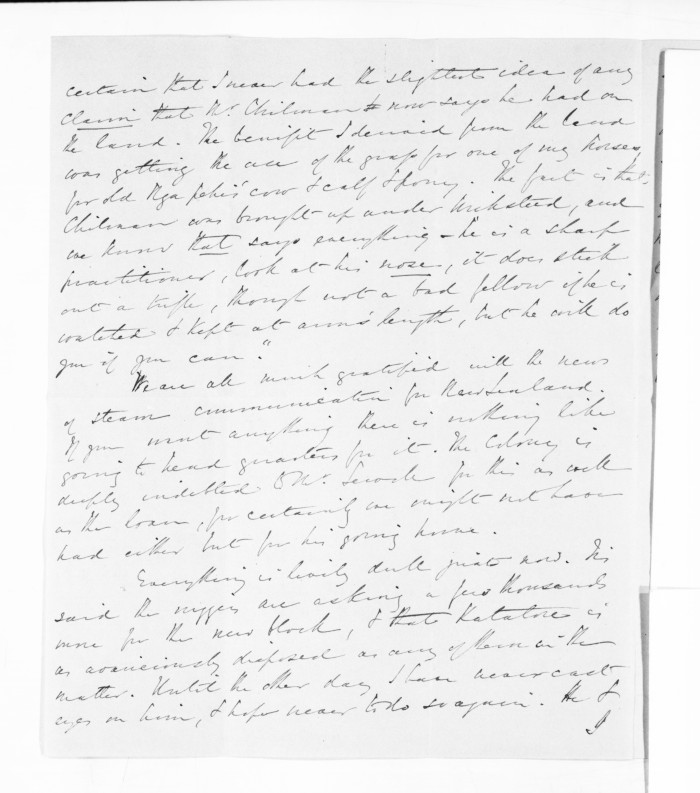 certain that I never had the slightest idea of any
claim that Mr. Chilman now says he had on
the land. The benifit I derived from the land
was getting the use of the grass for one of my horses,
for old Nga pehi's cow & calf & pony. The fact is that
Chilman was brought up under Wicksteed, and
we know that says everything - he is a sharp
practitioner, look at his nose, it does stick
out a trifle, though not a bad fellow if he is
watched & kept at arm's length, but he will do
you if you can."
We are all much gratified with the news
of steam communication for New Zealand.
If you want anything there is nothing like
going to head quarters for it. The Colony is
deeply indebted to Mr. Sewell for this as well
as the loan, for certainly we might not have
had either but for his going home.
Everything is dull just now. Tis
said the niggers are asking a few thousands
more for the new block, & that Katatore is
as avariciously disposed as any of them in the
matter. Until the other day I have never cast
eyes on him, & hope never to do so again. He &
I